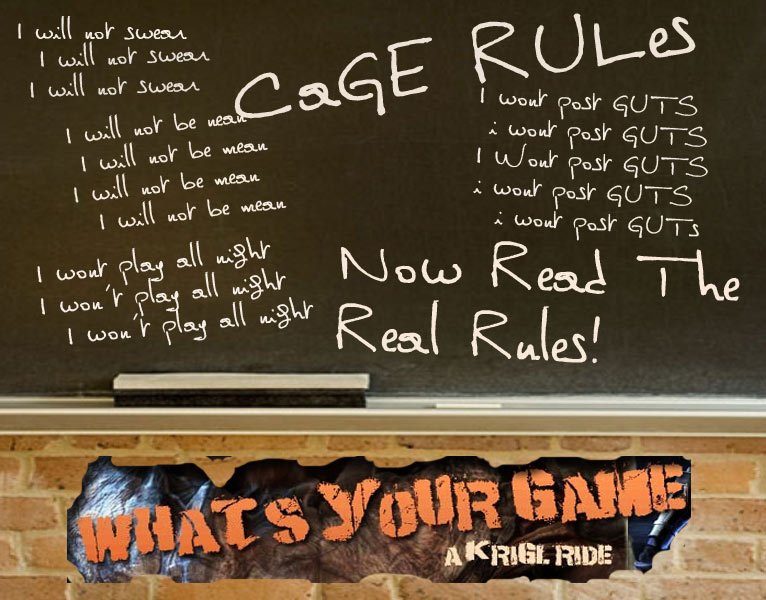 I will not swear
I will not swear
I will not swear
CaGE RULes
I will not be mean
I will not be mean
I will not be mean
I will not be mean
I wont post GUTS
i wont post GUTS
I Wont post GUTS
i wont post GUTS
i wont post GUTs
I wont play all night
I won't play all night
I won't play all night
Now Read The
Real Rules!
WHATS YOUR GAME
A KRIGL RIDE